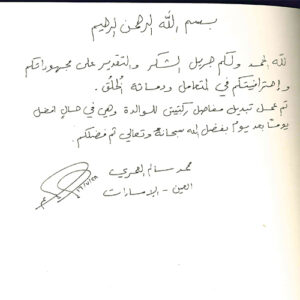 بسم الله الرحمن الرحيم
لله الحمد ولكم جزيل الشكر والتقدير على مجهوداتكم
وإحترافيتكم في التعامل ودماثة الخُلُق.
تم عمل تبديل مفاصل ركبتين للوالدة وهي في حال أفضل
يوماً بعد يوم بفضل الله سبحانه وتعالى ثم فضلكم.
محمد سالم
العين - الإمارات